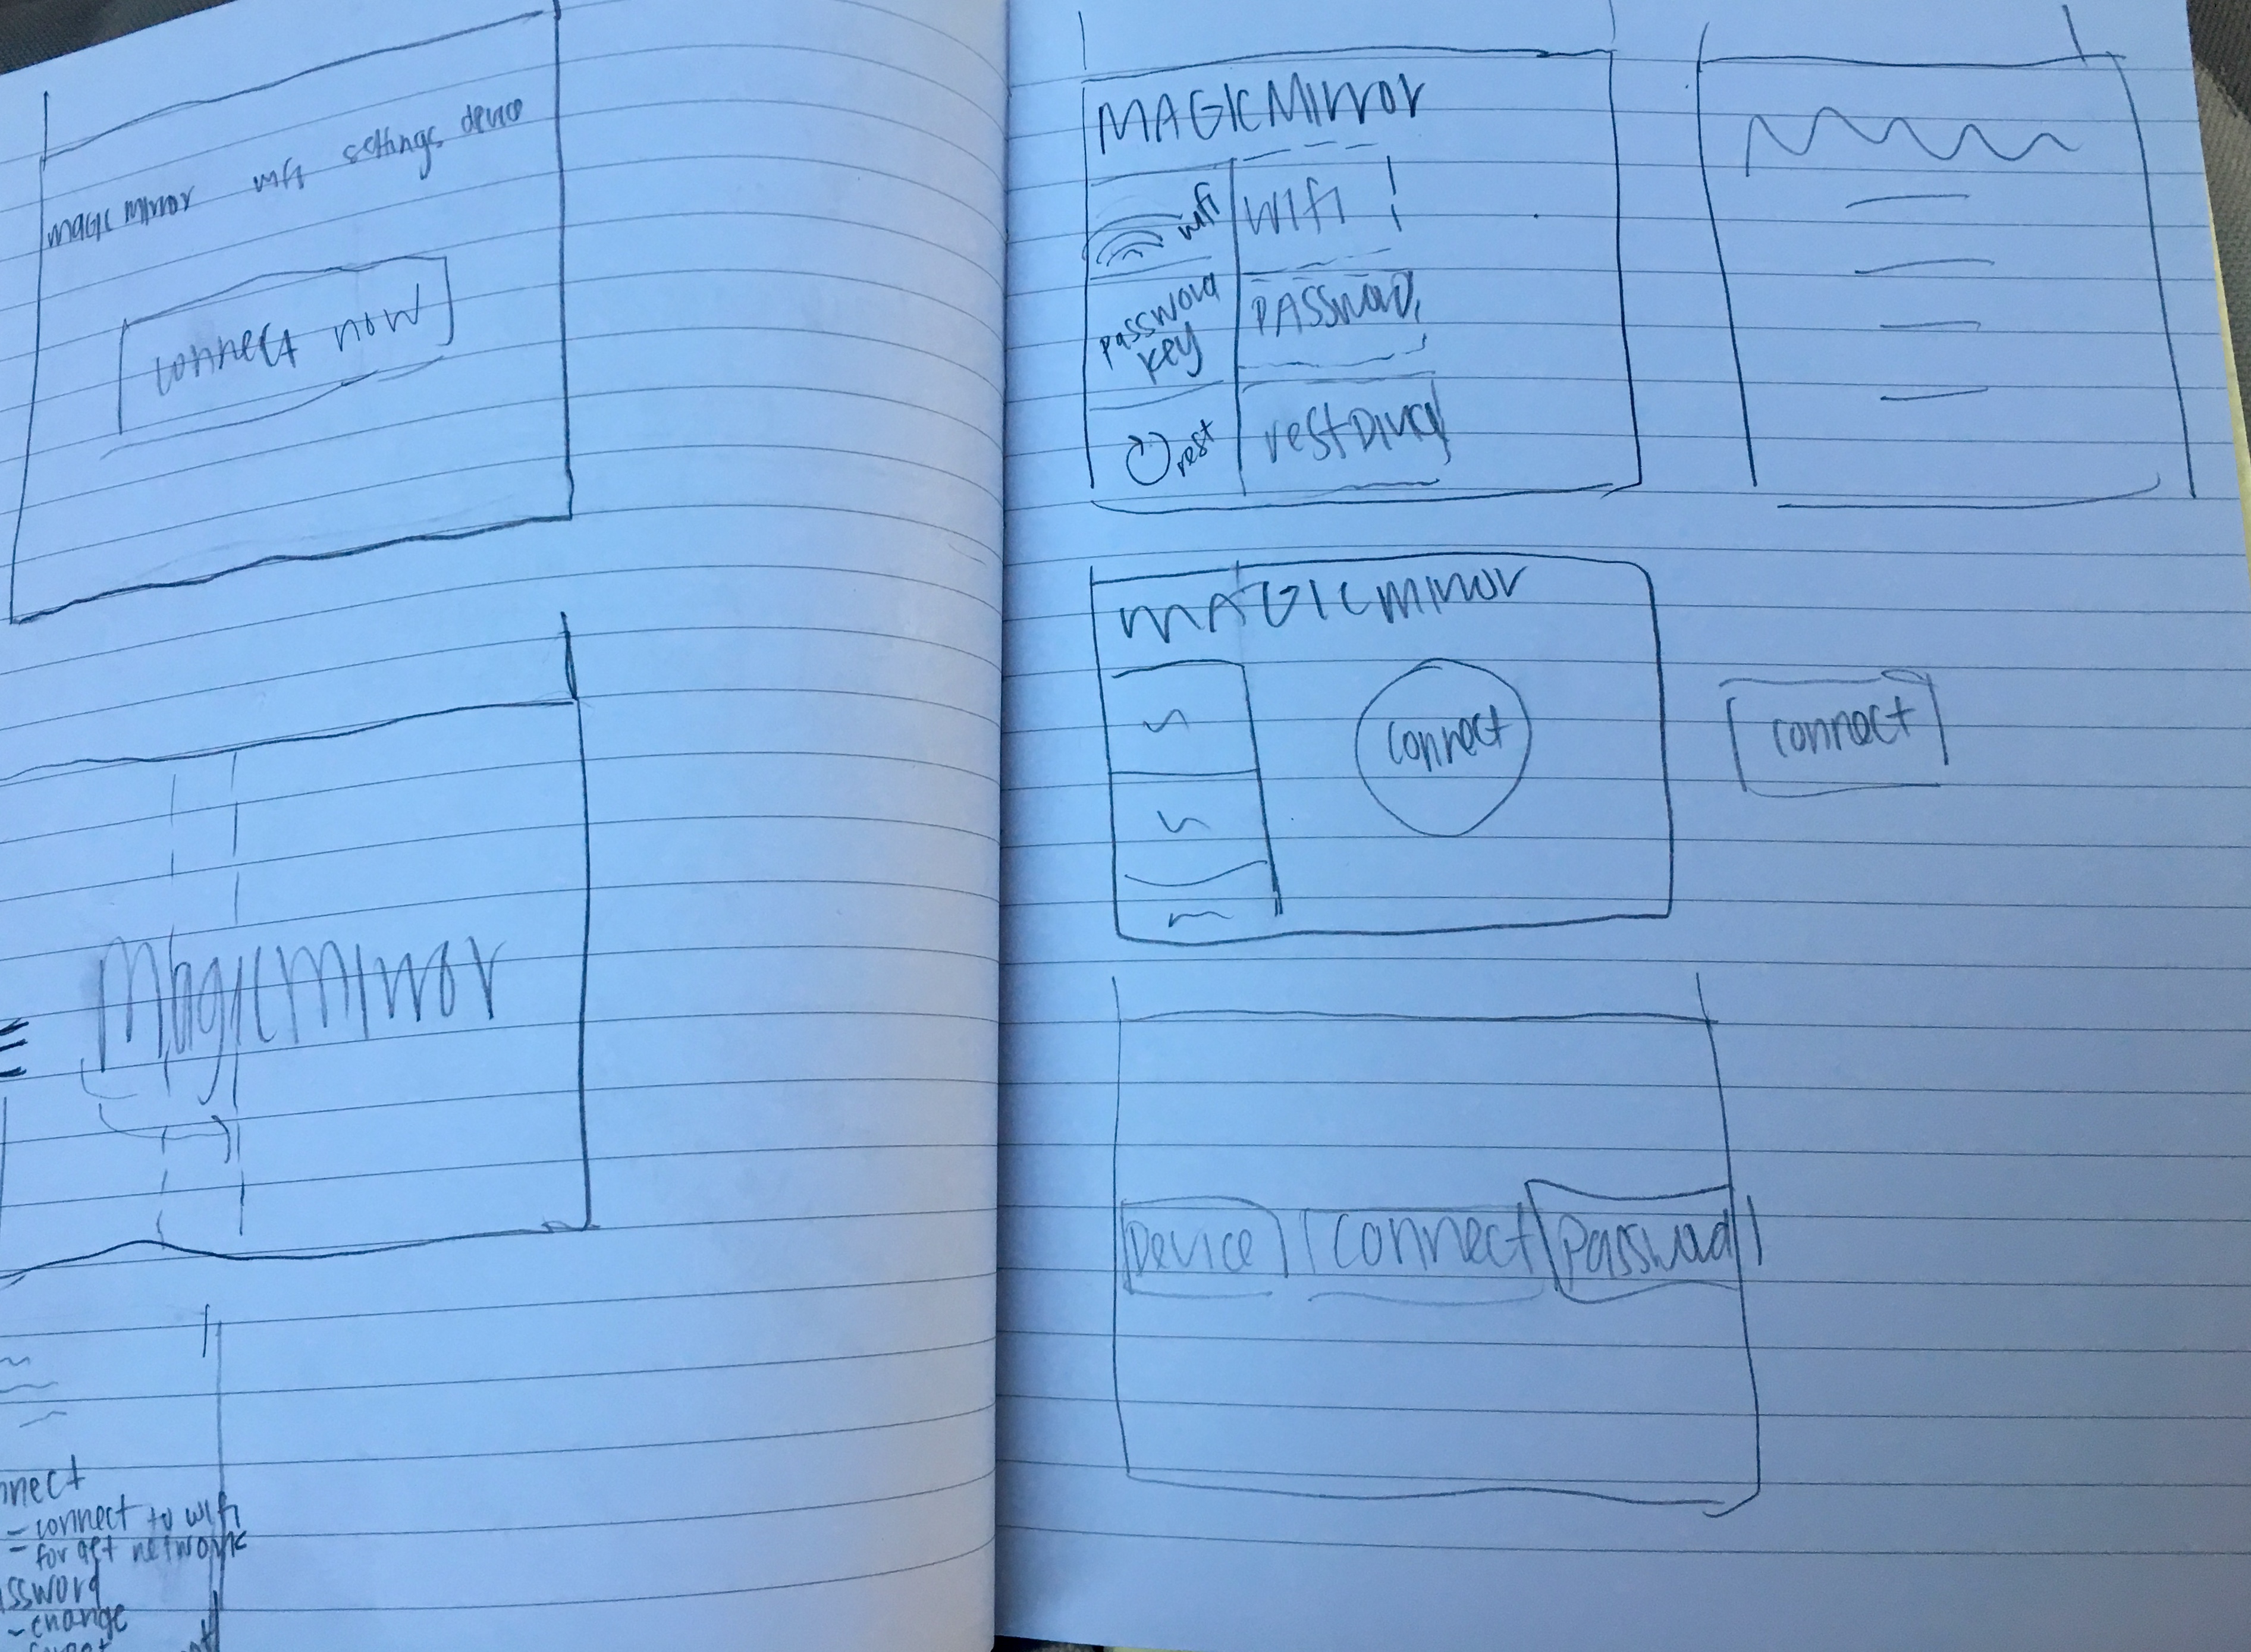 magic mirror wifi settings device
connect now
Magic Mirror
nnect
- connect to wifi
- forget network
ssword
- change
MAGIC MIrror
wifi
wifi
password
key
PASSWORD
rest
MAGIC mirror
connect
connect
Device
connect
Password